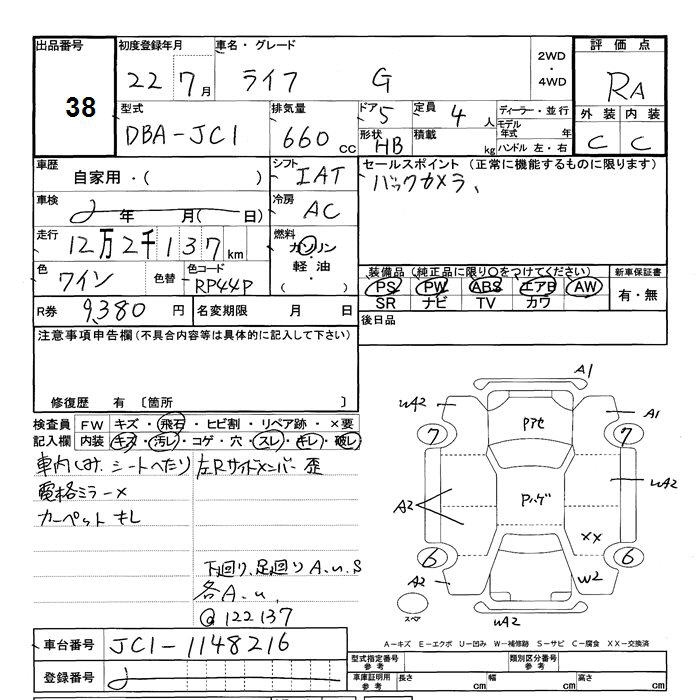 出品番号 初度登録年月 車名・グレード 2WD・4WD 評価点
38 22 7月 ライフ G RA
型式 排気量 ドア 5 定員 4人 ディーラー・並行 外装 内装
DBA-JC1 660cc 形状 HB 積載 kg モデル年式 年 ハンドル 左・右 C C
車歴 シフト IAT セールスポイント (正常に機能するものに限ります)
自家用・( ) バックカメラ、
車検 2 年 月( 日) 冷房 AC
走行 12万2千137km 燃料 ガソリン
軽・油
( )
色 ワイン 色替 色コード RP44P 装備品 (純正品に限り○をつけてください) 新車保証書
PS PW ABS エアB AW 有・無
SR ナビ TV カワ
R券 9,380円 名変期限 月 日 後日品
注意事項申告欄 (不具合内容等は具体的に記入して下さい)
修復歴 有 〔箇所 〕
検査員 FW キズ・飛石・ヒビ割・リペア跡・×要
記入欄 内装 キズ・汚レ・コゲ・穴・スレ・キレ・破レ
車内しみ、シートへたり 左Rサイドメンバー歪
電格ミラー×
カーペット キレ
下回り、足回りA.u.S
各A.u.
@122137
A1
wA2 A1
7 Pアセ 7
A2 Pハゲ wA2
××
6 6
A2 W2
スペア wA2
A−キズ E−エクボ U−凹み W−補修跡 S−サビ C−腐食 XX−交換済
車台番号 JC1-1148216 型式指定番号 参考 類別区分番号 参考
登録番号 車庫証明用 参考 長さ cm 幅 cm 高さ cm